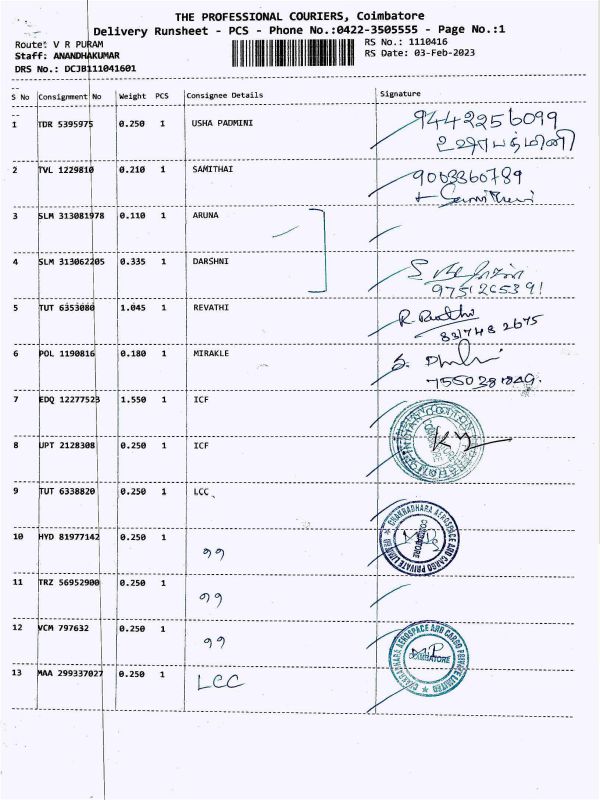 THE PROFESSIONAL COURIERS, Coimbatore
Delivery Runsheet - PCS - Phone No.:0422-3505555 - Page No.:1
Route: V R PURAM RS No.: 1110416
Staff: ANANDHAKUMAR RS Date: 03-Feb-2023
DRS No.: DCJB111041601
S No Consignment No Weight PCS Consignee Details Signature
1 TDR 5395975 0.250 1 USHA PADMINI 9442256099
உஷாபத்மினி
2 TVL 1229810 0.210 1 SAMITHAI 9003360789
3 SLM 313081978 0.110 1 ARUNA
4 SLM 313062205 0.335 1 DARSHNI
9751265391
5 TUT 6353080 1.045 1 REVATHI R. Revathi
831748 2675
6 POL 1190816 0.180 1 MIRAKLE
7550381849.
7 EDQ 12277523 1.550 1 ICF
8 UPT 2128308 0.250 1 ICF
9 TUT 6338820 0.250 1 LCC
CHAKRADHARA AEROSPACE AND CARGO PRIVATE LIMITED
COIMBATORE
10 HYD 81977142 0.250 1 99
11 TRZ 56952900 0.250 1 99
12 VCM 797632 0.250 1 99
CHAKRADHARA AEROSPACE AND CARGO PRIVATE LIMITED
COIMBATORE
13 MAA 299337027 0.250 1 LCC